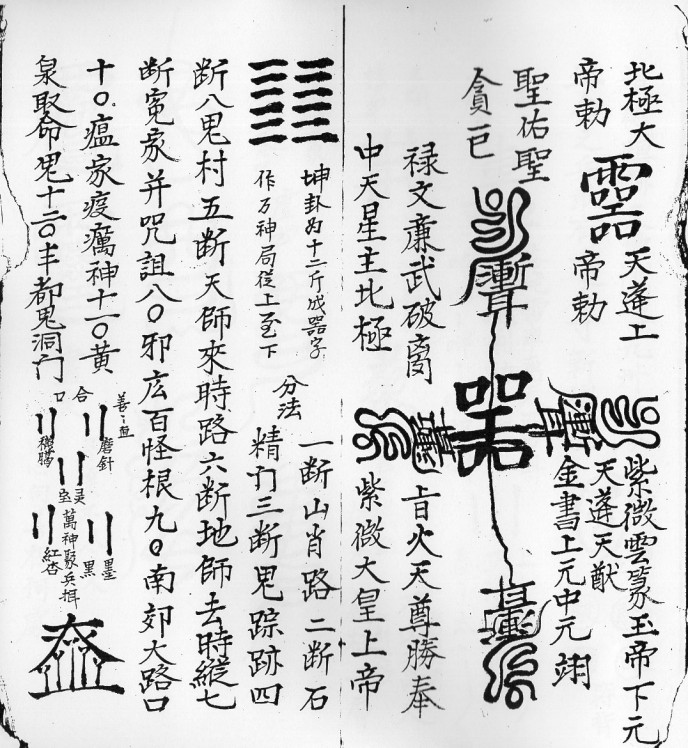 北極大
帝勅
天蓬上
帝勅
聖佑聖
貪巨
禄文廉武破
中天星主北極
紫微雲篆玉帝下元
天蓬天猷
金書上元中元翊
上旨火天尊勝奉
紫微大皇上帝
坤卦為十二斤成器字
作万神局從上至下
分法
一断山肖路二断石
精门三断鬼踪跡四
断八鬼村五断天師來時路六断地師去時縱七
断冤家并咒詛八〇邪広百怪根九〇南郊大路口
十〇瘟家疫癘神十一〇黄
泉取命鬼十二〇丰都鬼洞门
合口
磨針
萬神聚兵
紅杏
黑墨